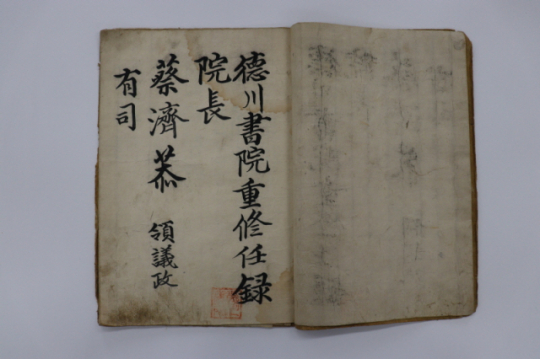 德川書院重修任録
院長
蔡濟恭 領議政
有司